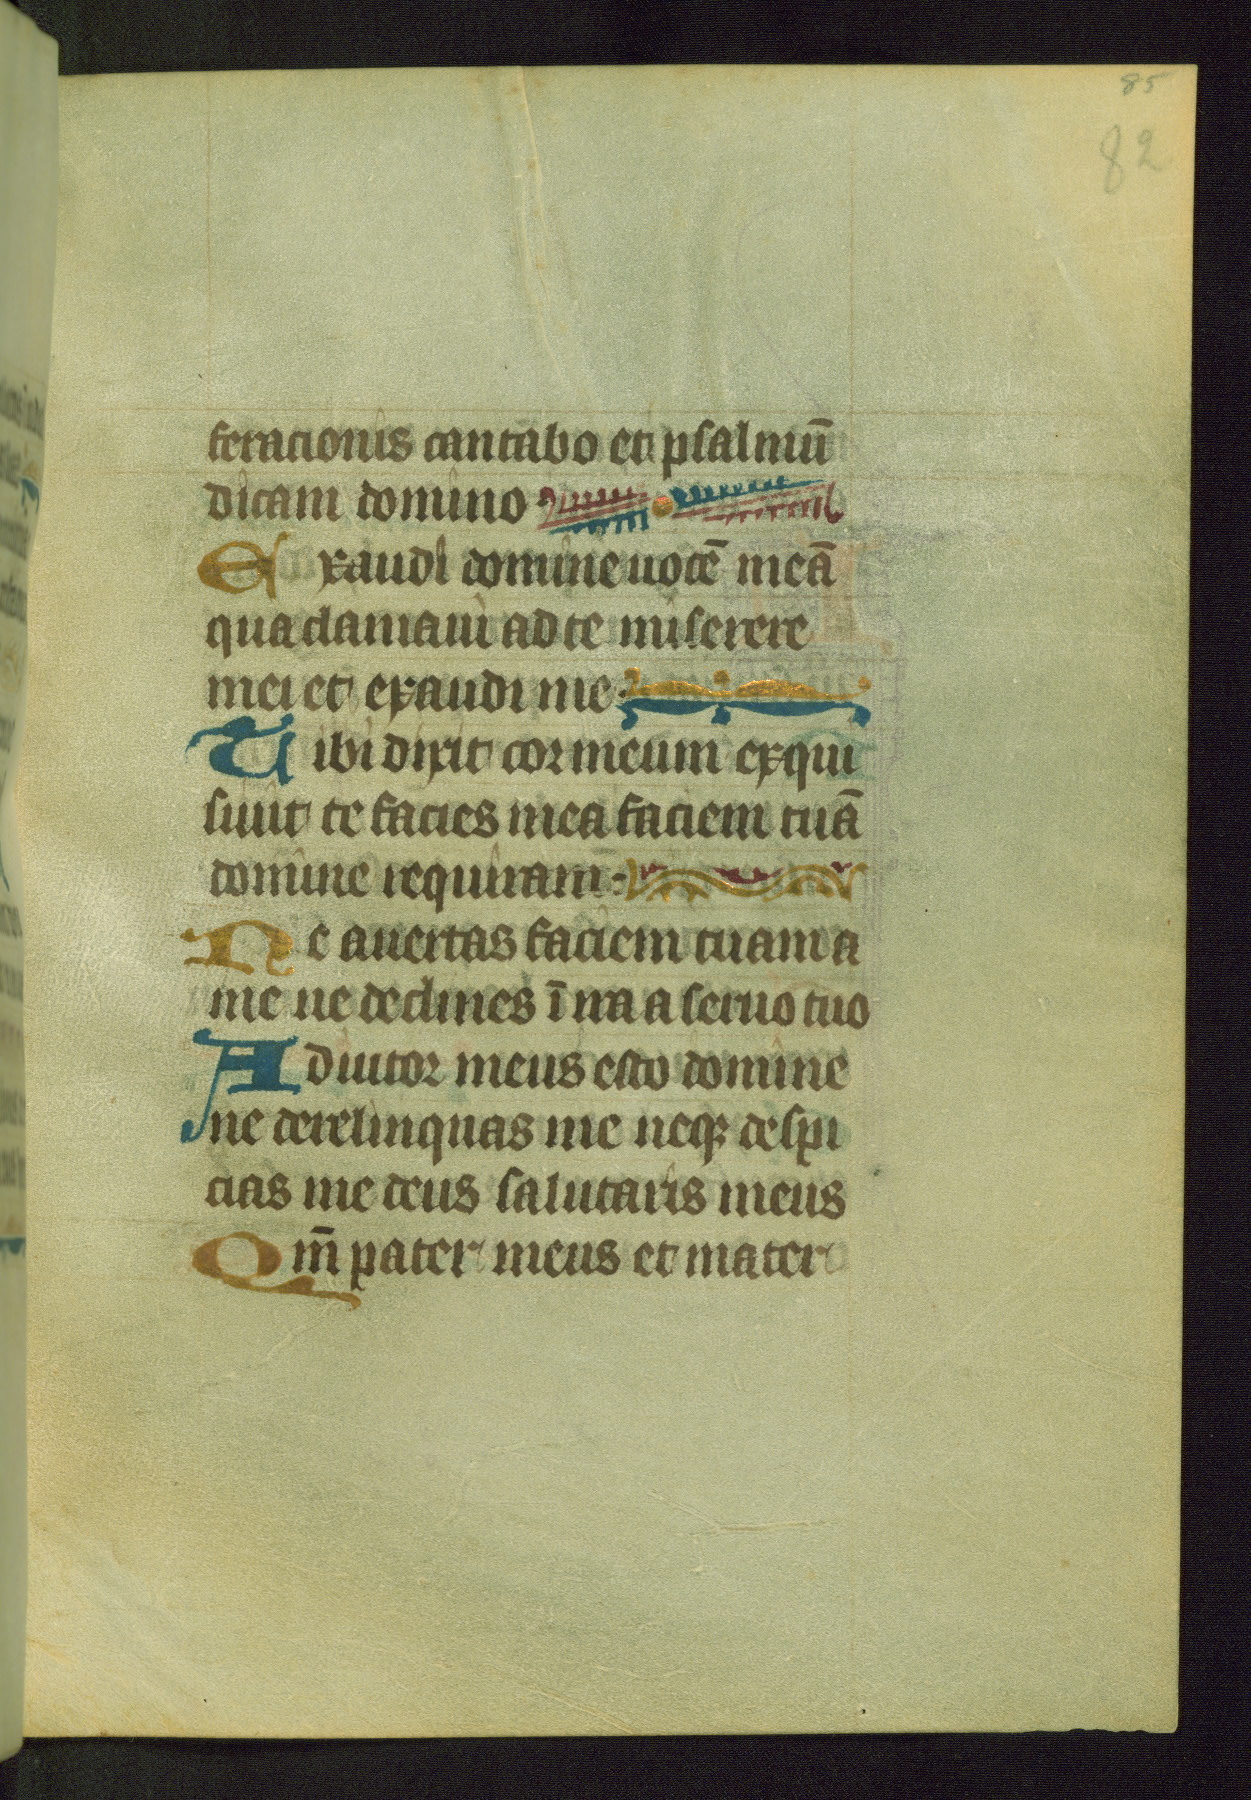 85
82
feracionis cantabo et psalmū
dicam domino
Exaudi domine uocē meā
qua clamaui ad te miserere
mei et exaudi me
Tibi dixit cor meum exqui
siuit te facies mea faciem tuā
domine requiram
Ne auertas faciem tuam a
me ne declines ī ira a seruo tuo
Adiutor meus esto domine
ne derelinquas me neqꝫ despi
cias me deus salutaris meus
Qm̄ pater meus et mater